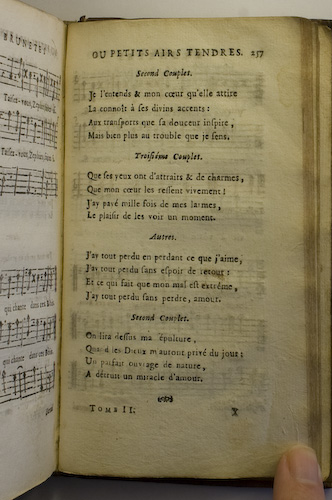 BRUNETES
Taisez-vous,
Taisez-vous,
qui chante dans ces Bois.
qui chante dans ces Bois.
OU PETITS AIRS TENDRES. 237
Second Couplet.
Je l'entends & mon cœur qu'elle attire
La connoît à ses divins accents:
Aux transports que sa douceur inspire,
Mais bien plus au trouble que je sens.
Troisiéme Couplet.
Que ses yeux ont d'attraits & de charmes,
Que mon cœur les ressent vivement!
J'ay payé mille fois de mes larmes,
Le plaisir de les voir un moment.
Autres.
J'ay tout perdu en perdant ce que j'aime,
J'ay tout perdu sans espoir de retour:
Et ce qui fait que mon mal est extrême,
J'ay tout perdu sans perdre, amour.
Second Couplet.
On lira dessus ma sépulture,
Quand les Dieux m'auront privé du jour:
Un parfait ouvrage de nature,
A détruit un miracle d'amour.
TOME II. X